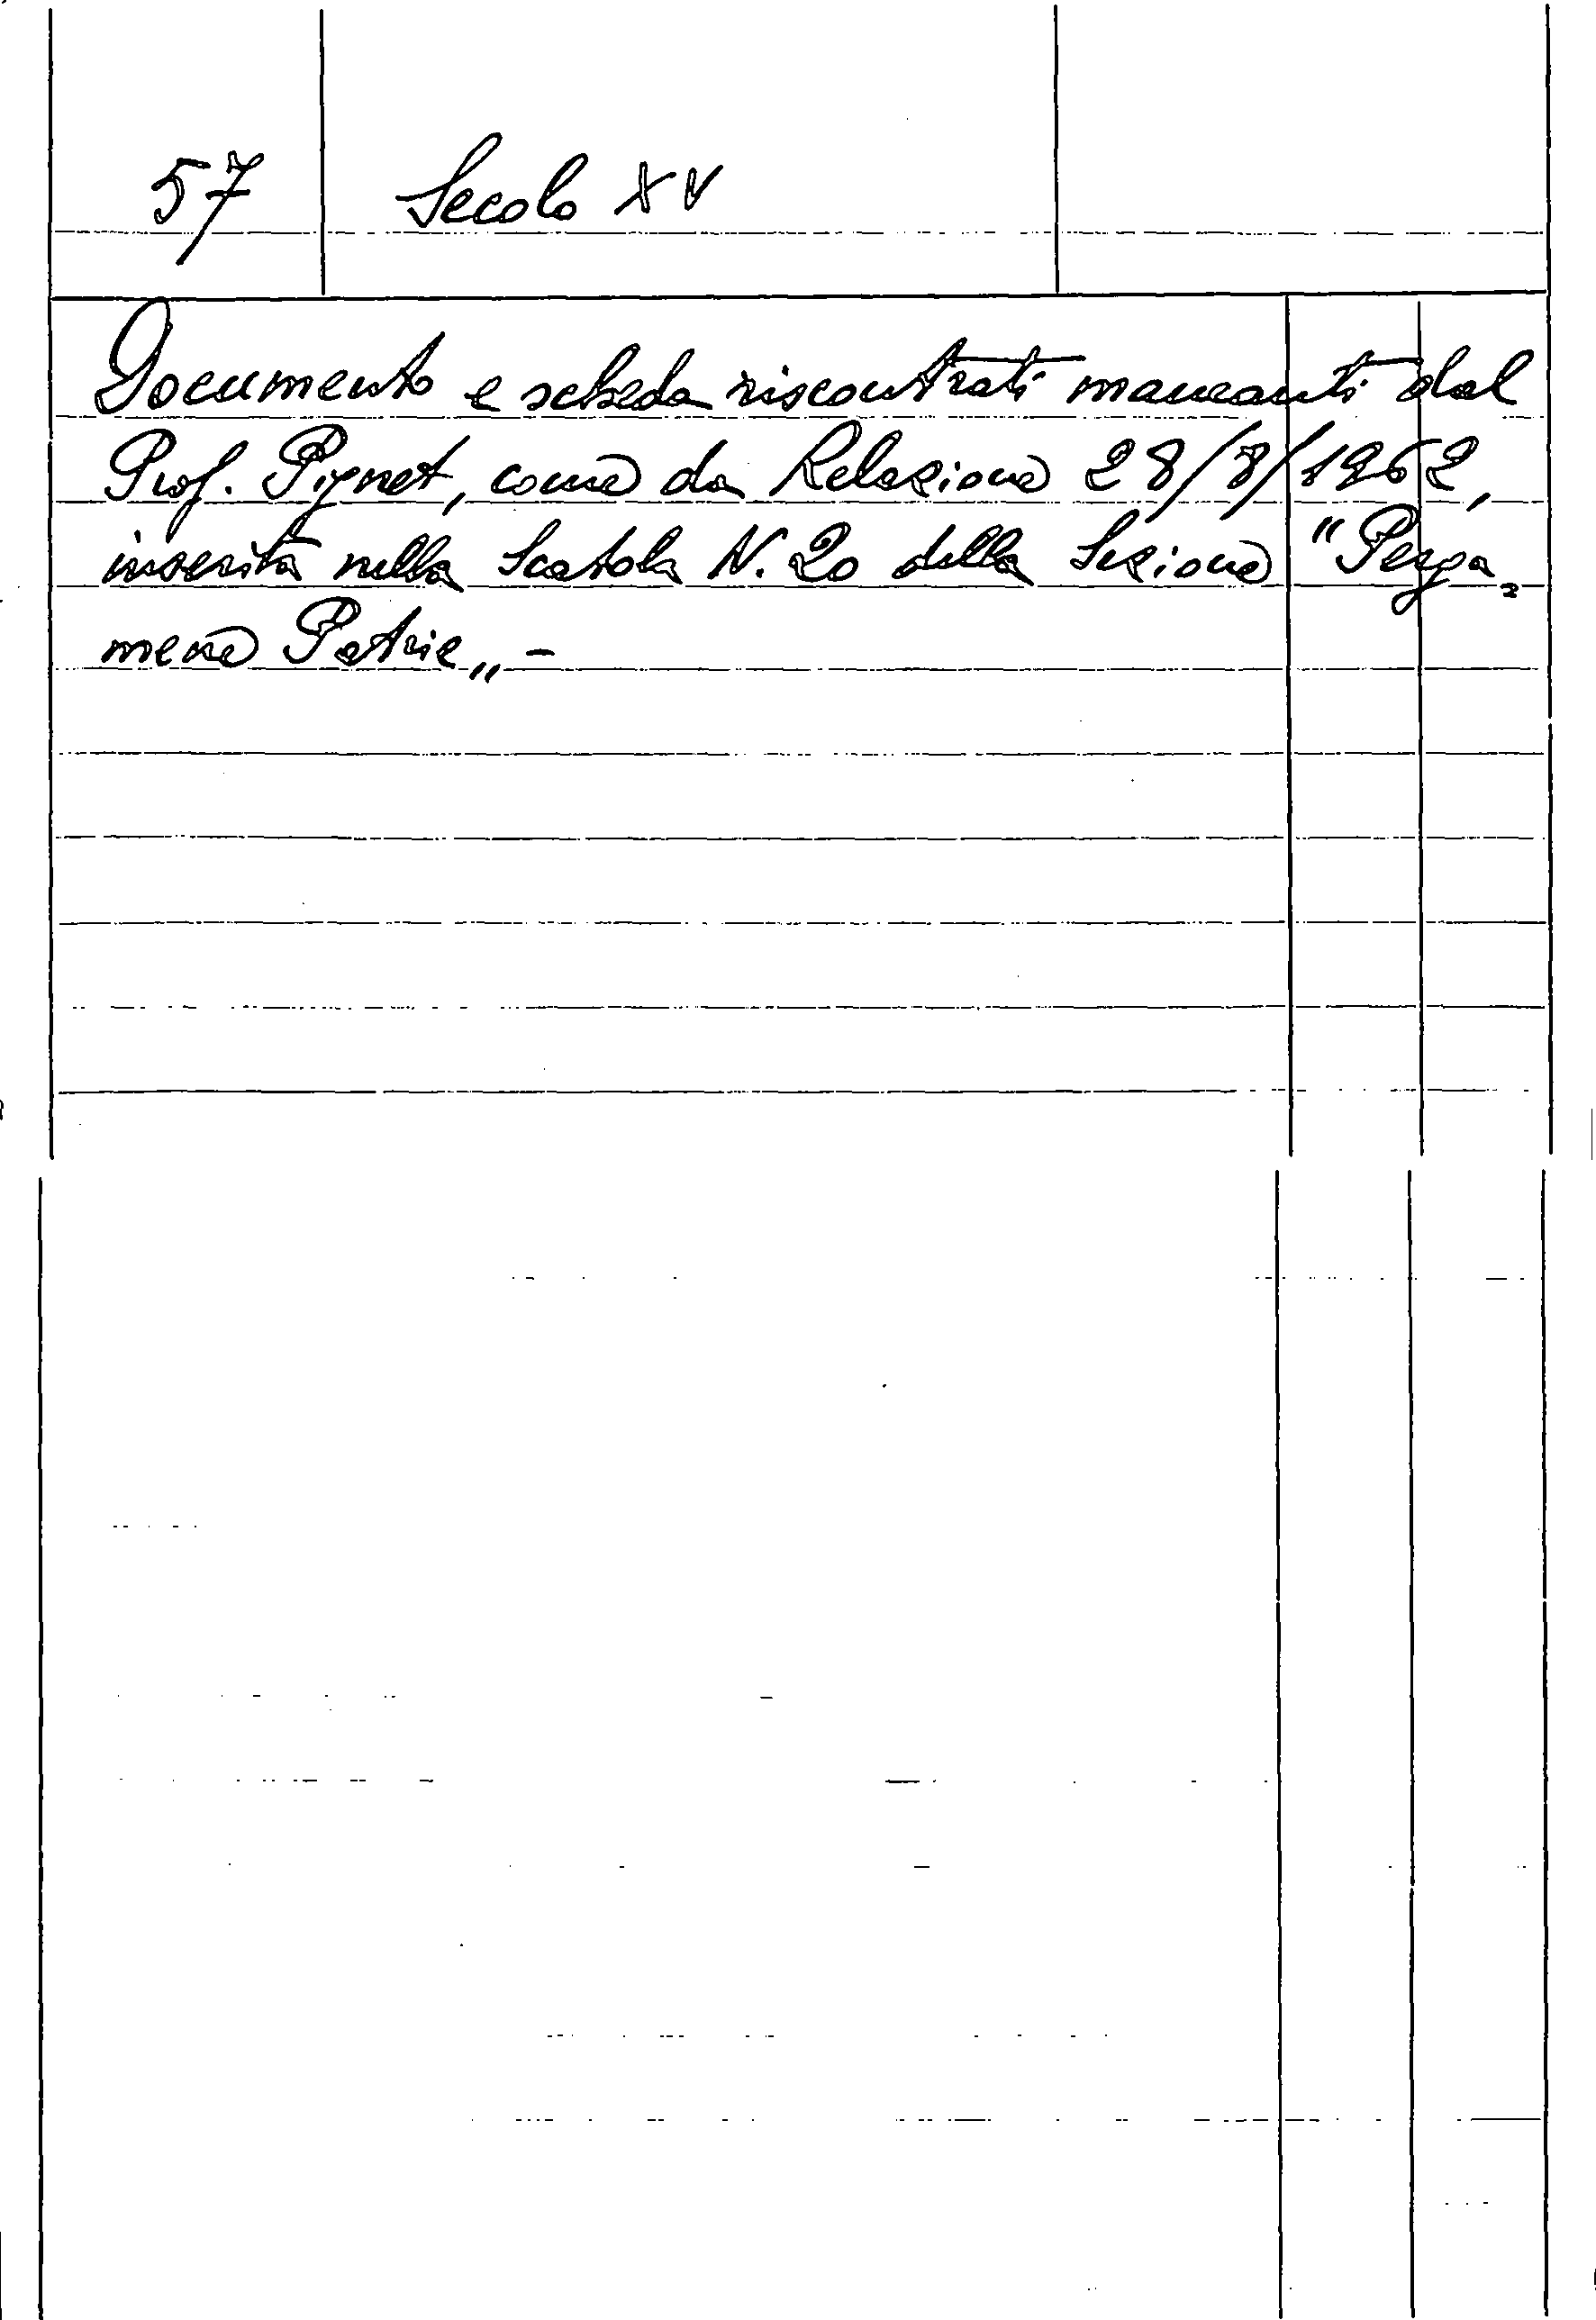 57 Secolo XV
Documento e scheda riscontrati mancanti dal
Prof. Pignet, come da Relazione 28/8/1962,
inserita nella Scatola N. 20 della Sezione "Perga=
mene Patrie„ -